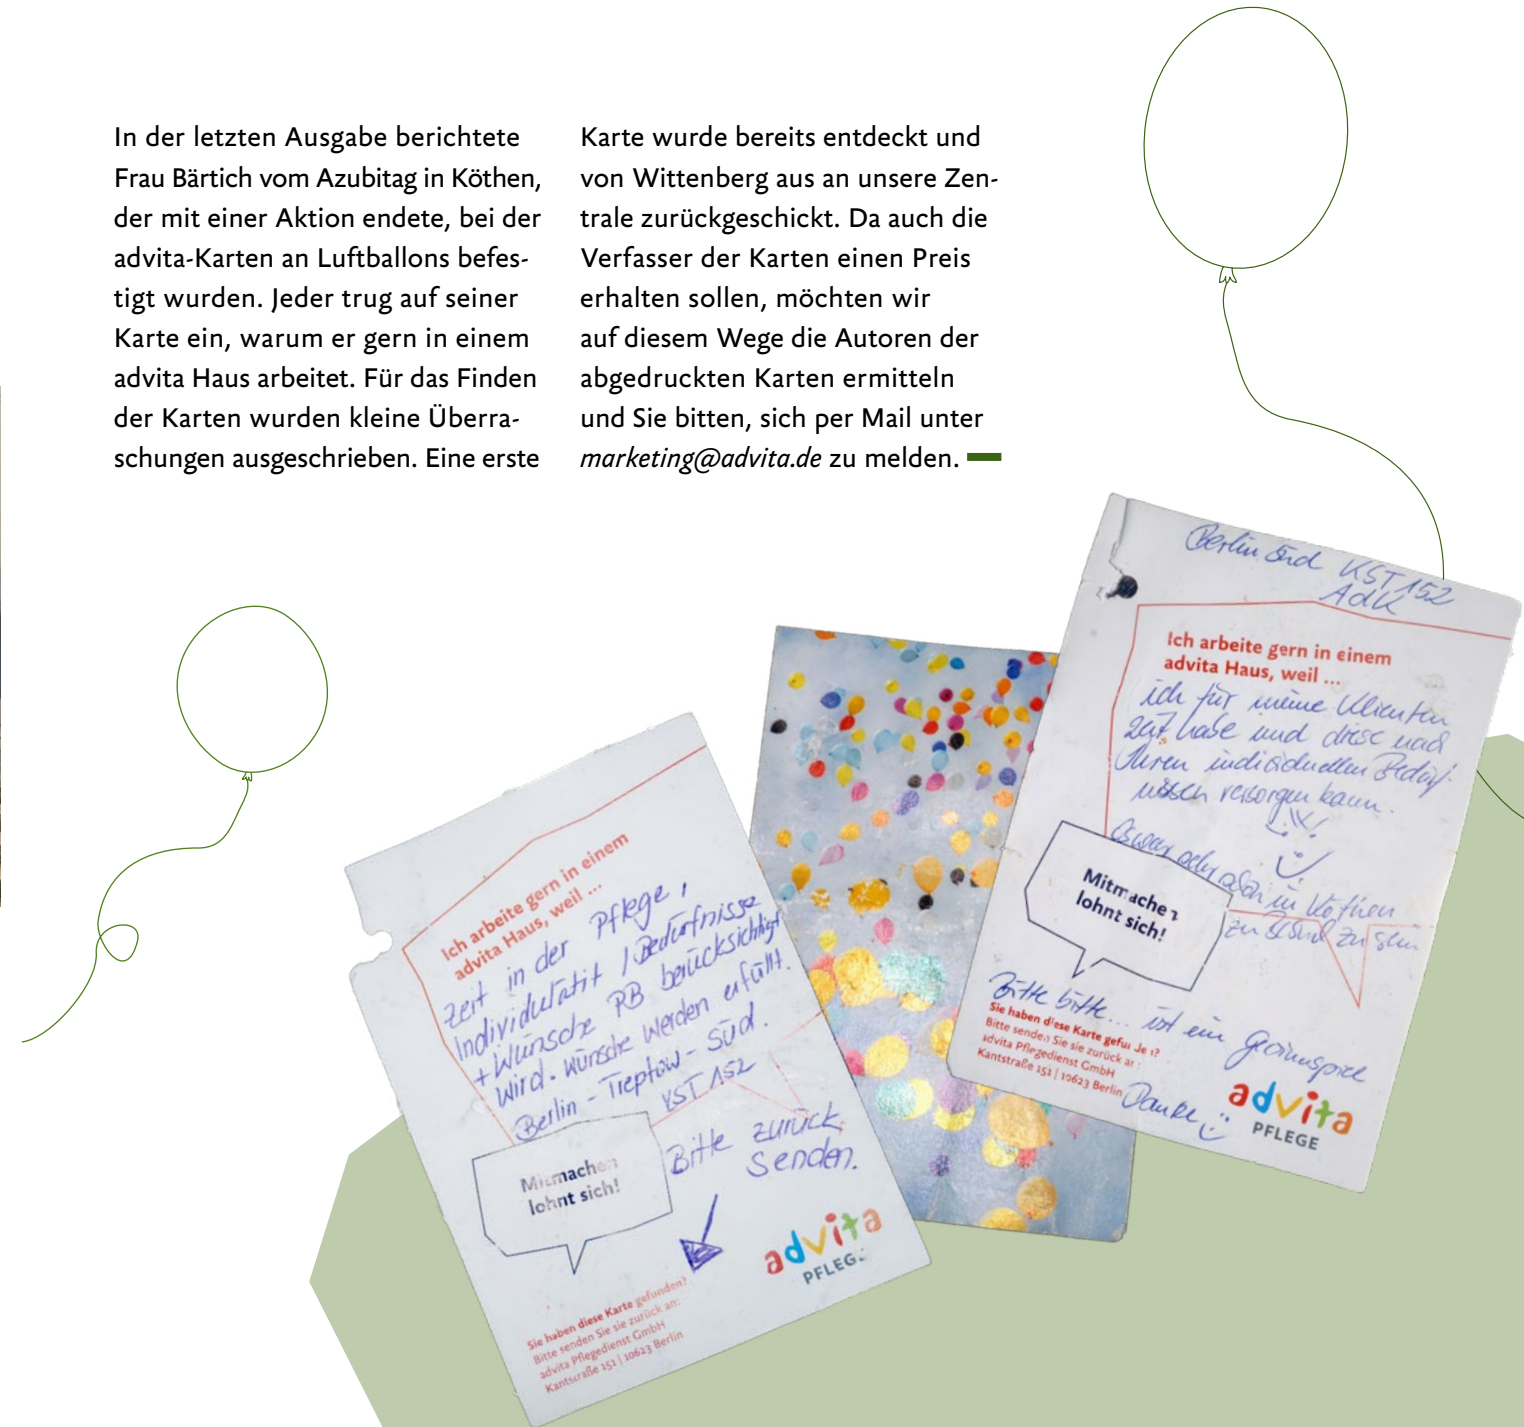 In der letzten Ausgabe berichtete
Frau Bärtich vom Azubitag in Köthen,
der mit einer Aktion endete, bei der
advita-Karten an Luftballons befes-
tigt wurden. Jeder trug auf seiner
Karte ein, warum er gern in einem
advita Haus arbeitet. Für das Finden
der Karten wurden kleine Überra-
schungen ausgeschrieben. Eine erste
Karte wurde bereits entdeckt und
von Wittenberg aus an unsere Zen-
trale zurückgeschickt. Da auch die
Verfasser der Karten einen Preis
erhalten sollen, möchten wir
auf diesem Wege die Autoren der
abgedruckten Karten ermitteln
und Sie bitten, sich per Mail unter
marketing@advita.de zu melden.
Ich arbeite gern in einem
advita Haus, weil ...
Zeit in der Pflege,
/ Bedürfnisse
+ Wünsche PB berücksichtigt
wird. Wünsche werden erfüllt.
Berlin - Treptow - Süd.
KST 152
Mitmachen
lohnt sich!
Bitte zurück
senden.
Sie haben diese Karte gefunden?
Bitte senden Sie sie zurück an:
advita Pflegedienst GmbH
Kantstraße 151 | 10623 Berlin
advita
PFLEGE
Berlin Süd KST 152
AdK
Ich arbeite gern in einem
advita Haus, weil ...
ich für meine Klienten
Zeit habe und diese nach
Ihren individuellen Bedürf-
nissen versorgen kann.
Es war in Köthen
zu sein
Mitmachen
lohnt sich!
Bitte bitte... ist ein Gewinnspiel
Danke
Sie haben diese Karte gefunden?
Bitte senden Sie sie zurück an:
advita Pflegedienst GmbH
Kantstraße 151 | 10623 Berlin
advita
PFLEGE